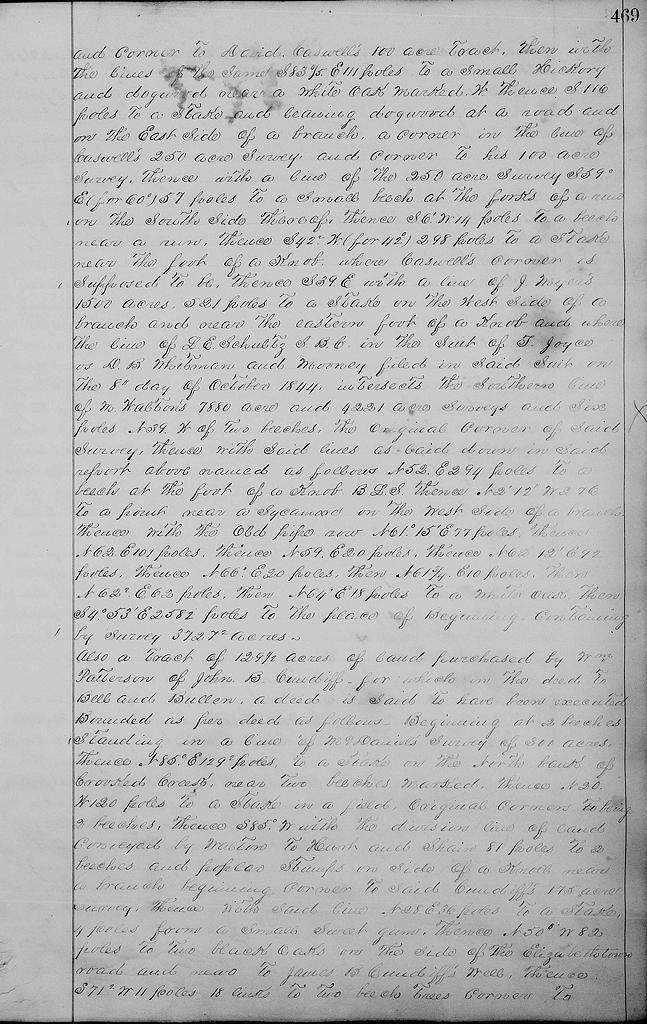 469
and Corner to David Caswell's 100 acre Tract, then with
the lines of the Same S 83 4/5 E 111 poles to a Small Hickory
and dogwood near a White Oak marked. W Thence S 116
poles to a Stake and leaning dogwood at a road and
on the East Side of a branch, a corner in the line of
Caswell's 250 acre Survey and Corner to his 100 acre
Survey, Thence with a line of the 250 acre Survey S 59°
E (for 60°) 157 poles to a Small beech at the forks of a run
on the South Side thereof, thence S 6° W 14 poles to a beech
near a run, thence S 42° W (for 42) 298 poles to a Stake
near the foot of a Knob, where Caswell's corner is
Supposed to be, thence S 39 E with a line of J. Myer's
1500 acres, 321 poles to a Stake on the West Side of a
branch and near the eastern foot of a Knob and where
the line of L. E. Schultz S. B. C. in the Suit of T. Joyce
vs D. B. Whitman and Mooney filed in Said Suit on
the 8th day of October 1844, intersects the Southern line
of M. Walton's 7880 acre and 4221 acre Surveys and Six
poles N 59. W of Two beeches, the Original Corner of Said
Survey, thence with Said lines as laid down in Said
report above named as follows N 52. E 294 poles to a
beech at the foot of a Knob B. L. S. thence N 2° 12' W 276
to a point near a Sycamore on the West Side of a branch,
thence with the Old pipe now N 61° 15' E 77 poles, Thence
N 62 E 101 poles, thence N 59. E 20 poles, thence N 62 12' E 92
poles, thence N 66° E 20 poles, then N 61 1/4 E 10 poles. Then
N 62° E 63 poles, then N 64° E 18 poles to a white oak. Then
S 4° 53' E 258 1/2 poles to the place of Beginning. Containing
by Survey 372 acres.
Also a Tract of 129 1/2 acres of land purchased by Wm
Patterson of John. B. Cundiff for which in the deed to
Bell and Bullen, a deed is Said to have been executed
Bounded as per deed as follows - Beginning at 2 beeches
Standing in a line of McDaniel's Survey of 300 acres,
thence N 85° E 129 poles, to a Stake on the North bank of
Crooked Creek, near Two beeches marked, thence N 20.
W 120 poles to a Stake in a field, Original Corners to being
2 beeches, thence S 85° W with the division line of land
conveyed by Walton to Hart and Shain 81 poles to 2
beeches and poplar Stumps on Side of a Knoll near
a branch beginning Corner to Said Cundiff's 175 acre
Survey, thence With Said line N 28 E 36 poles to a Stake,
4 poles from a Small Sweet gum, thence N 50° W 82
poles to two black Oaks on the Side of the Elizabethtown
road and near to James B. Cundiff's Well, thence
S 71° W 11 poles 18 links to two beech Trees Corner to